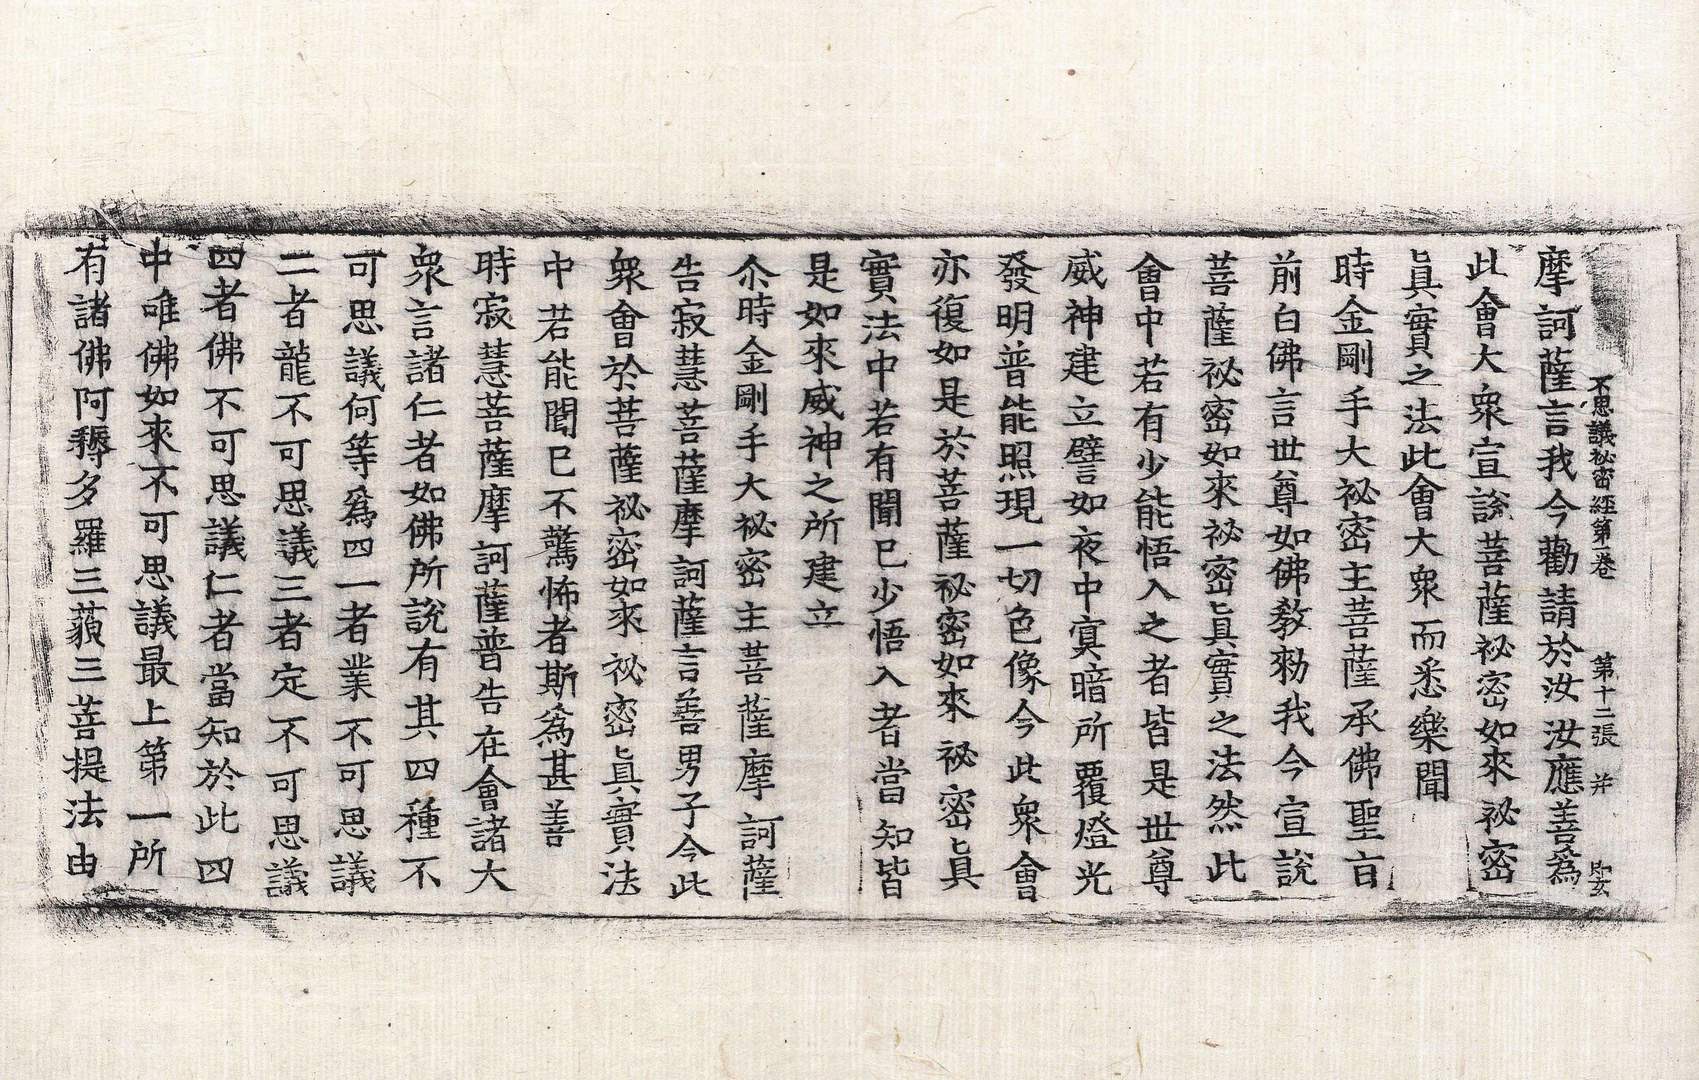 不思議祕密經第一卷 第十二張 幷
摩訶薩言我今勸請於汝汝應善爲
此會大衆宣說菩薩祕密如來祕密
眞實之法此會大衆而悉樂聞
時金剛手大祕密主菩薩承佛聖旨
前白佛言世尊如佛教勑我今宣說
菩薩祕密如來祕密眞實之法然此
會中若有少能悟入之者皆是世尊
威神建立譬如夜中冥暗所覆燈光
發明普能照現一切色像今此衆會
亦復如是於菩薩祕密如來祕密眞
實法中若有聞已少悟入者當知皆
是如來威神之所建立
尒時金剛手大祕密主菩薩摩訶薩
告寂慧菩薩摩訶薩言善男子今此
衆會於菩薩祕密如來祕密眞實法
中若能聞已不驚怖者斯爲甚善
時寂慧菩薩摩訶薩普告在會諸大
衆言諸仁者如佛所說有其四種不
可思議何等爲四一者業不可思議
二者龍不可思議三者定不可思議
四者佛不可思議仁者當知於此四
中唯佛如來不可思議最上第一所
有諸佛阿耨多羅三藐三菩提法由